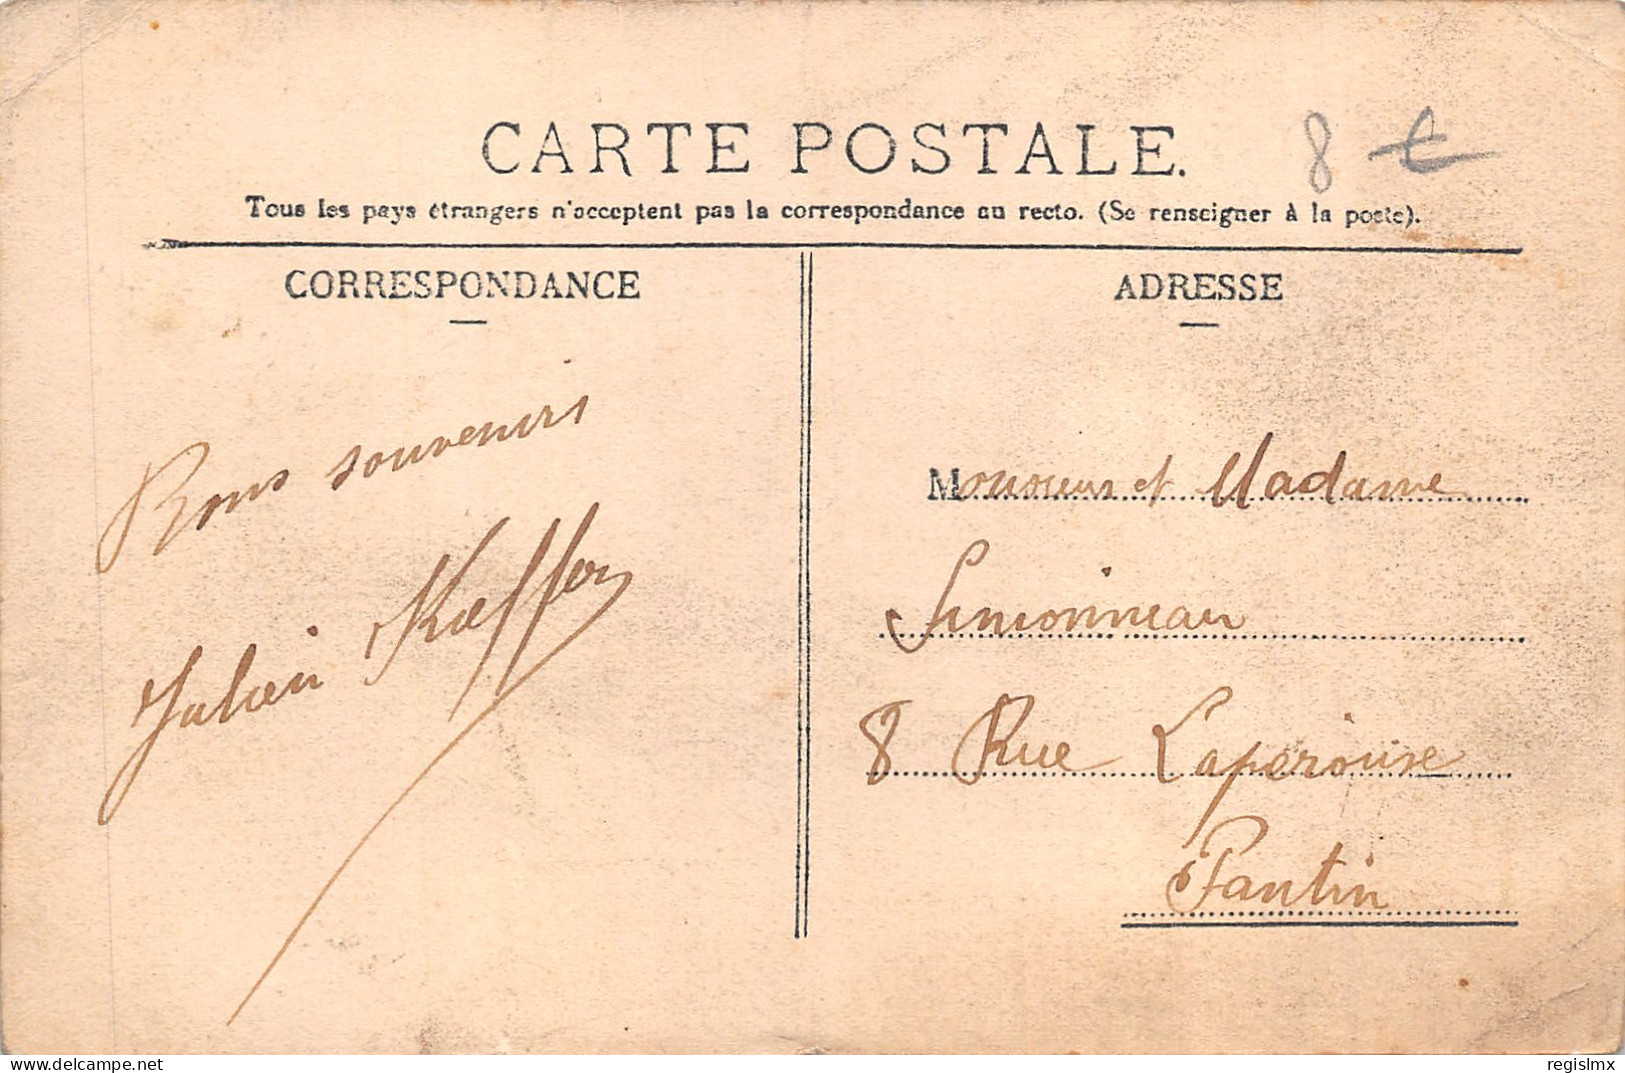 CARTE POSTALE.
8 €
Tous les pays étrangers n'acceptent pas la correspondance au recto. (Se renseigner à la poste).
CORRESPONDANCE
ADRESSE
Bons souvenirs
Julien
Monsieur et Madame
Simonneau
8 Rue Laperouse
Pantin
regislmx